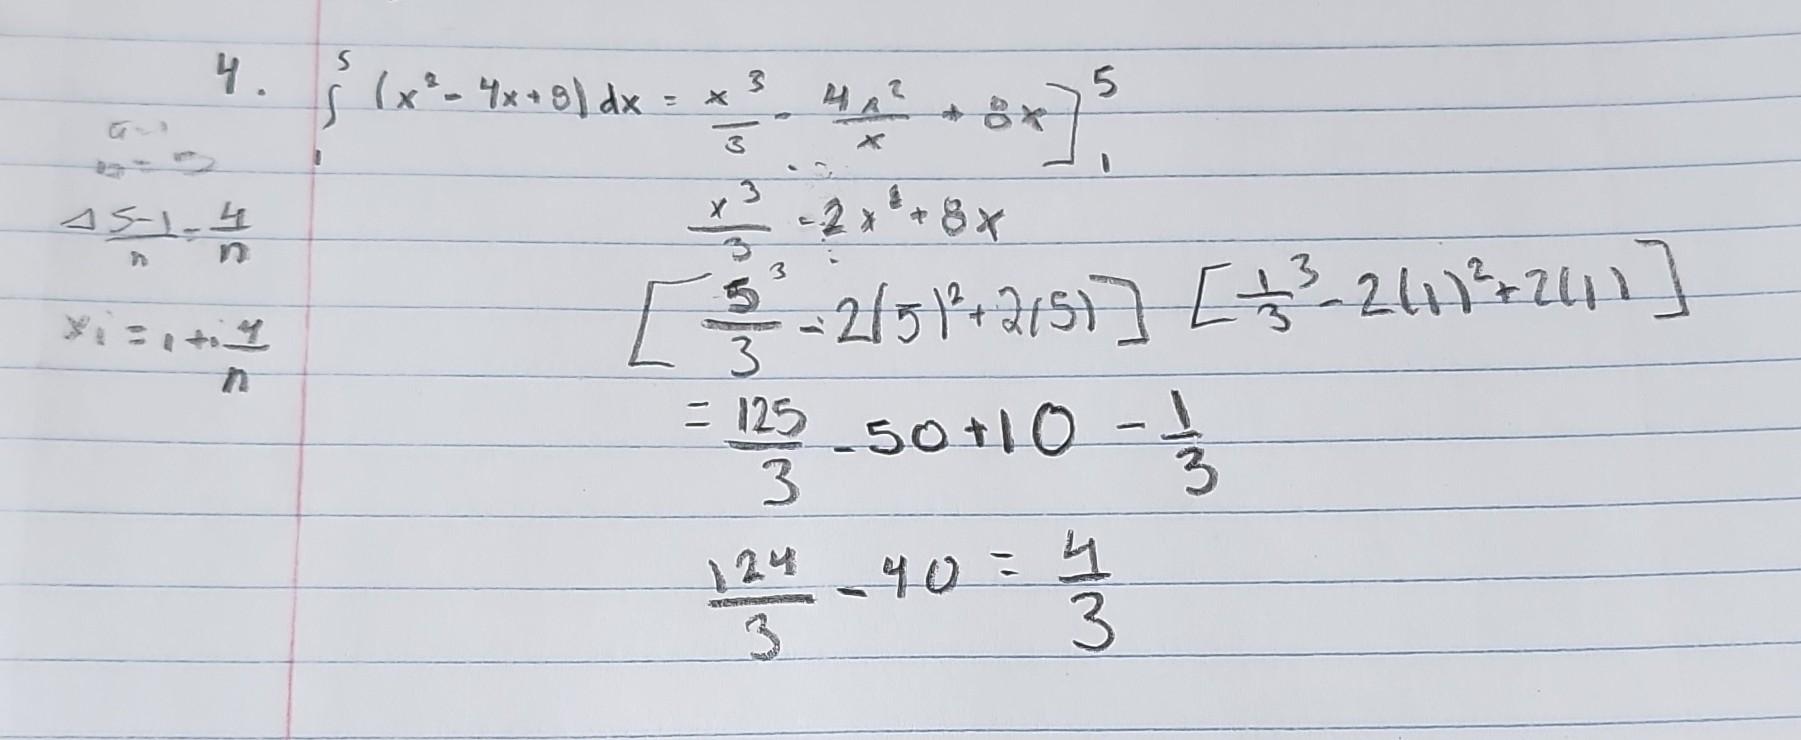 4. ∫₁⁵ (x² - 4x + 8) dx = x³/3 - 4x²/x + 8x ]₁⁵
a=1
Δ 5-1/n = 4/n
x³/3 - 2x² + 8x
xi = 1 + i 4/n
[ 5³/3 - 2(5)² + 2(5) ] [ 1/3³ - 2(1)² + 2(1) ]
= 125/3 - 50 + 10 - 1/3
124/3 - 40 = 4/3